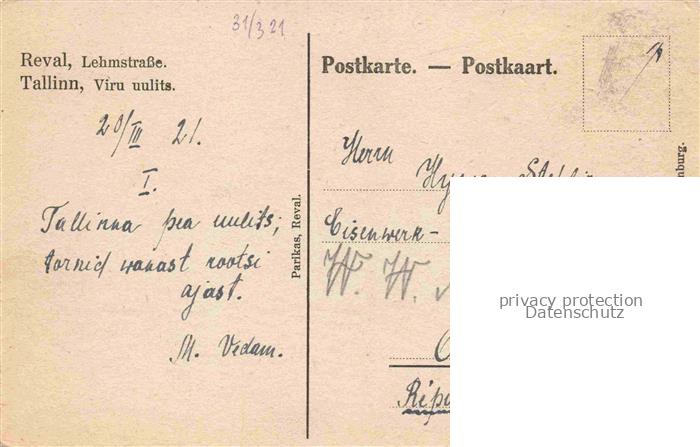 31/3 21
Reval, Lehmstraße.
Tallinn, Viru uulits.
20/III 21.
I.
Tallinna pea uulits;
tornid wanast rootsi
ajast.
M. Vedam.
Parikas, Reval.
Postkarte. — Postkaart.
Herrn
Eisenwerk-
W. W.
privacy protection
Datenschutz